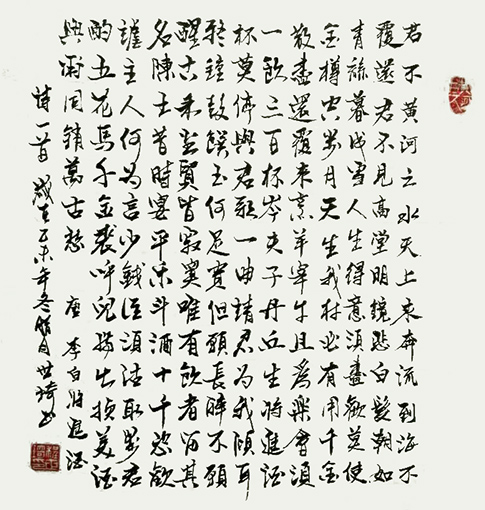 君不黄河之水天上来奔流到海不
覆還君不見高堂明鏡悲白髮朝如
青絲暮成雪人生得意須盡歡莫使
金樽空對月天生我材必有用千金
散盡還覆来烹羊宰牛且為樂會須
一飲三百杯岑夫子丹丘生將進酒
杯莫停與君歌一曲請君為我傾耳
聽鐘鼓饌玉何足貴但願長醉不願
醒古来聖賢皆寂寞唯有飲者留其
名陳王昔時宴平樂斗酒十千恣歡
謔主人何為言少錢徑須沽取對君
酌五花馬千金裘呼兒將出換美酒
與爾同銷萬古愁 唐 李白將進酒
詩一首 歲在乙未年冬月世琦書